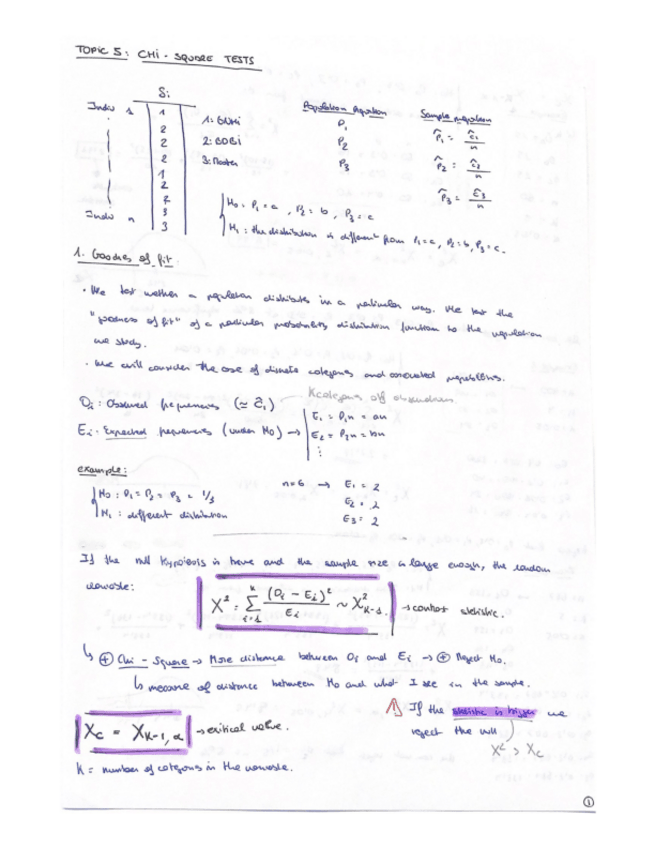 TOPIC 5: CHI-SQUARE TESTS
Si
Indiv 1
1
2
2
2
1
2
2
3
3
Indiv n
1:
2:
3:
Population proportion
P1
P2
P3
Sample proportion
p̂1 = ĉ1/n
p̂2 = ĉ2/n
p̂3 = ĉ3/n
H0: P1 = a, P2 = b, P3 = c
H1: the distribution is different from P1=a, P2=b, P3=c.
1. Goodnes of fit.
· We test wether a population distributes in a particular way. We test the
"goodness of fit" of a particular probability distribution function to the population
we study.
· We will consider the case of discrete categories and populations.
Oi: Observed frequencies (≃ ĉi)
K categories of observations
Ei: Expected frequencies (under H0) →
E1 = P1n = an
E2 = P2n = bn
⋮
example:
H0: P1 = P2 = P3 = 1/3
H1: different distribution
n=6 → E1 = 2
E2 = 2
E3 = 2
If the null Hypotesis is and the sample size is large enough, the random
variable:
X² = Σ (Oi - Ei)²/Ei ~ X²K-1
→ contrast statistic.
↳ ⊕ Chi-Square → More distance between Oi and Ei → ⊕ Reject H0.
↳ measure of distance between H0 and what I see in the sample.
If the statistic is bigger we
reject the null
X² > Xc
Xc = XK-1, α → critical value.
K = number of categories in the variable.
1